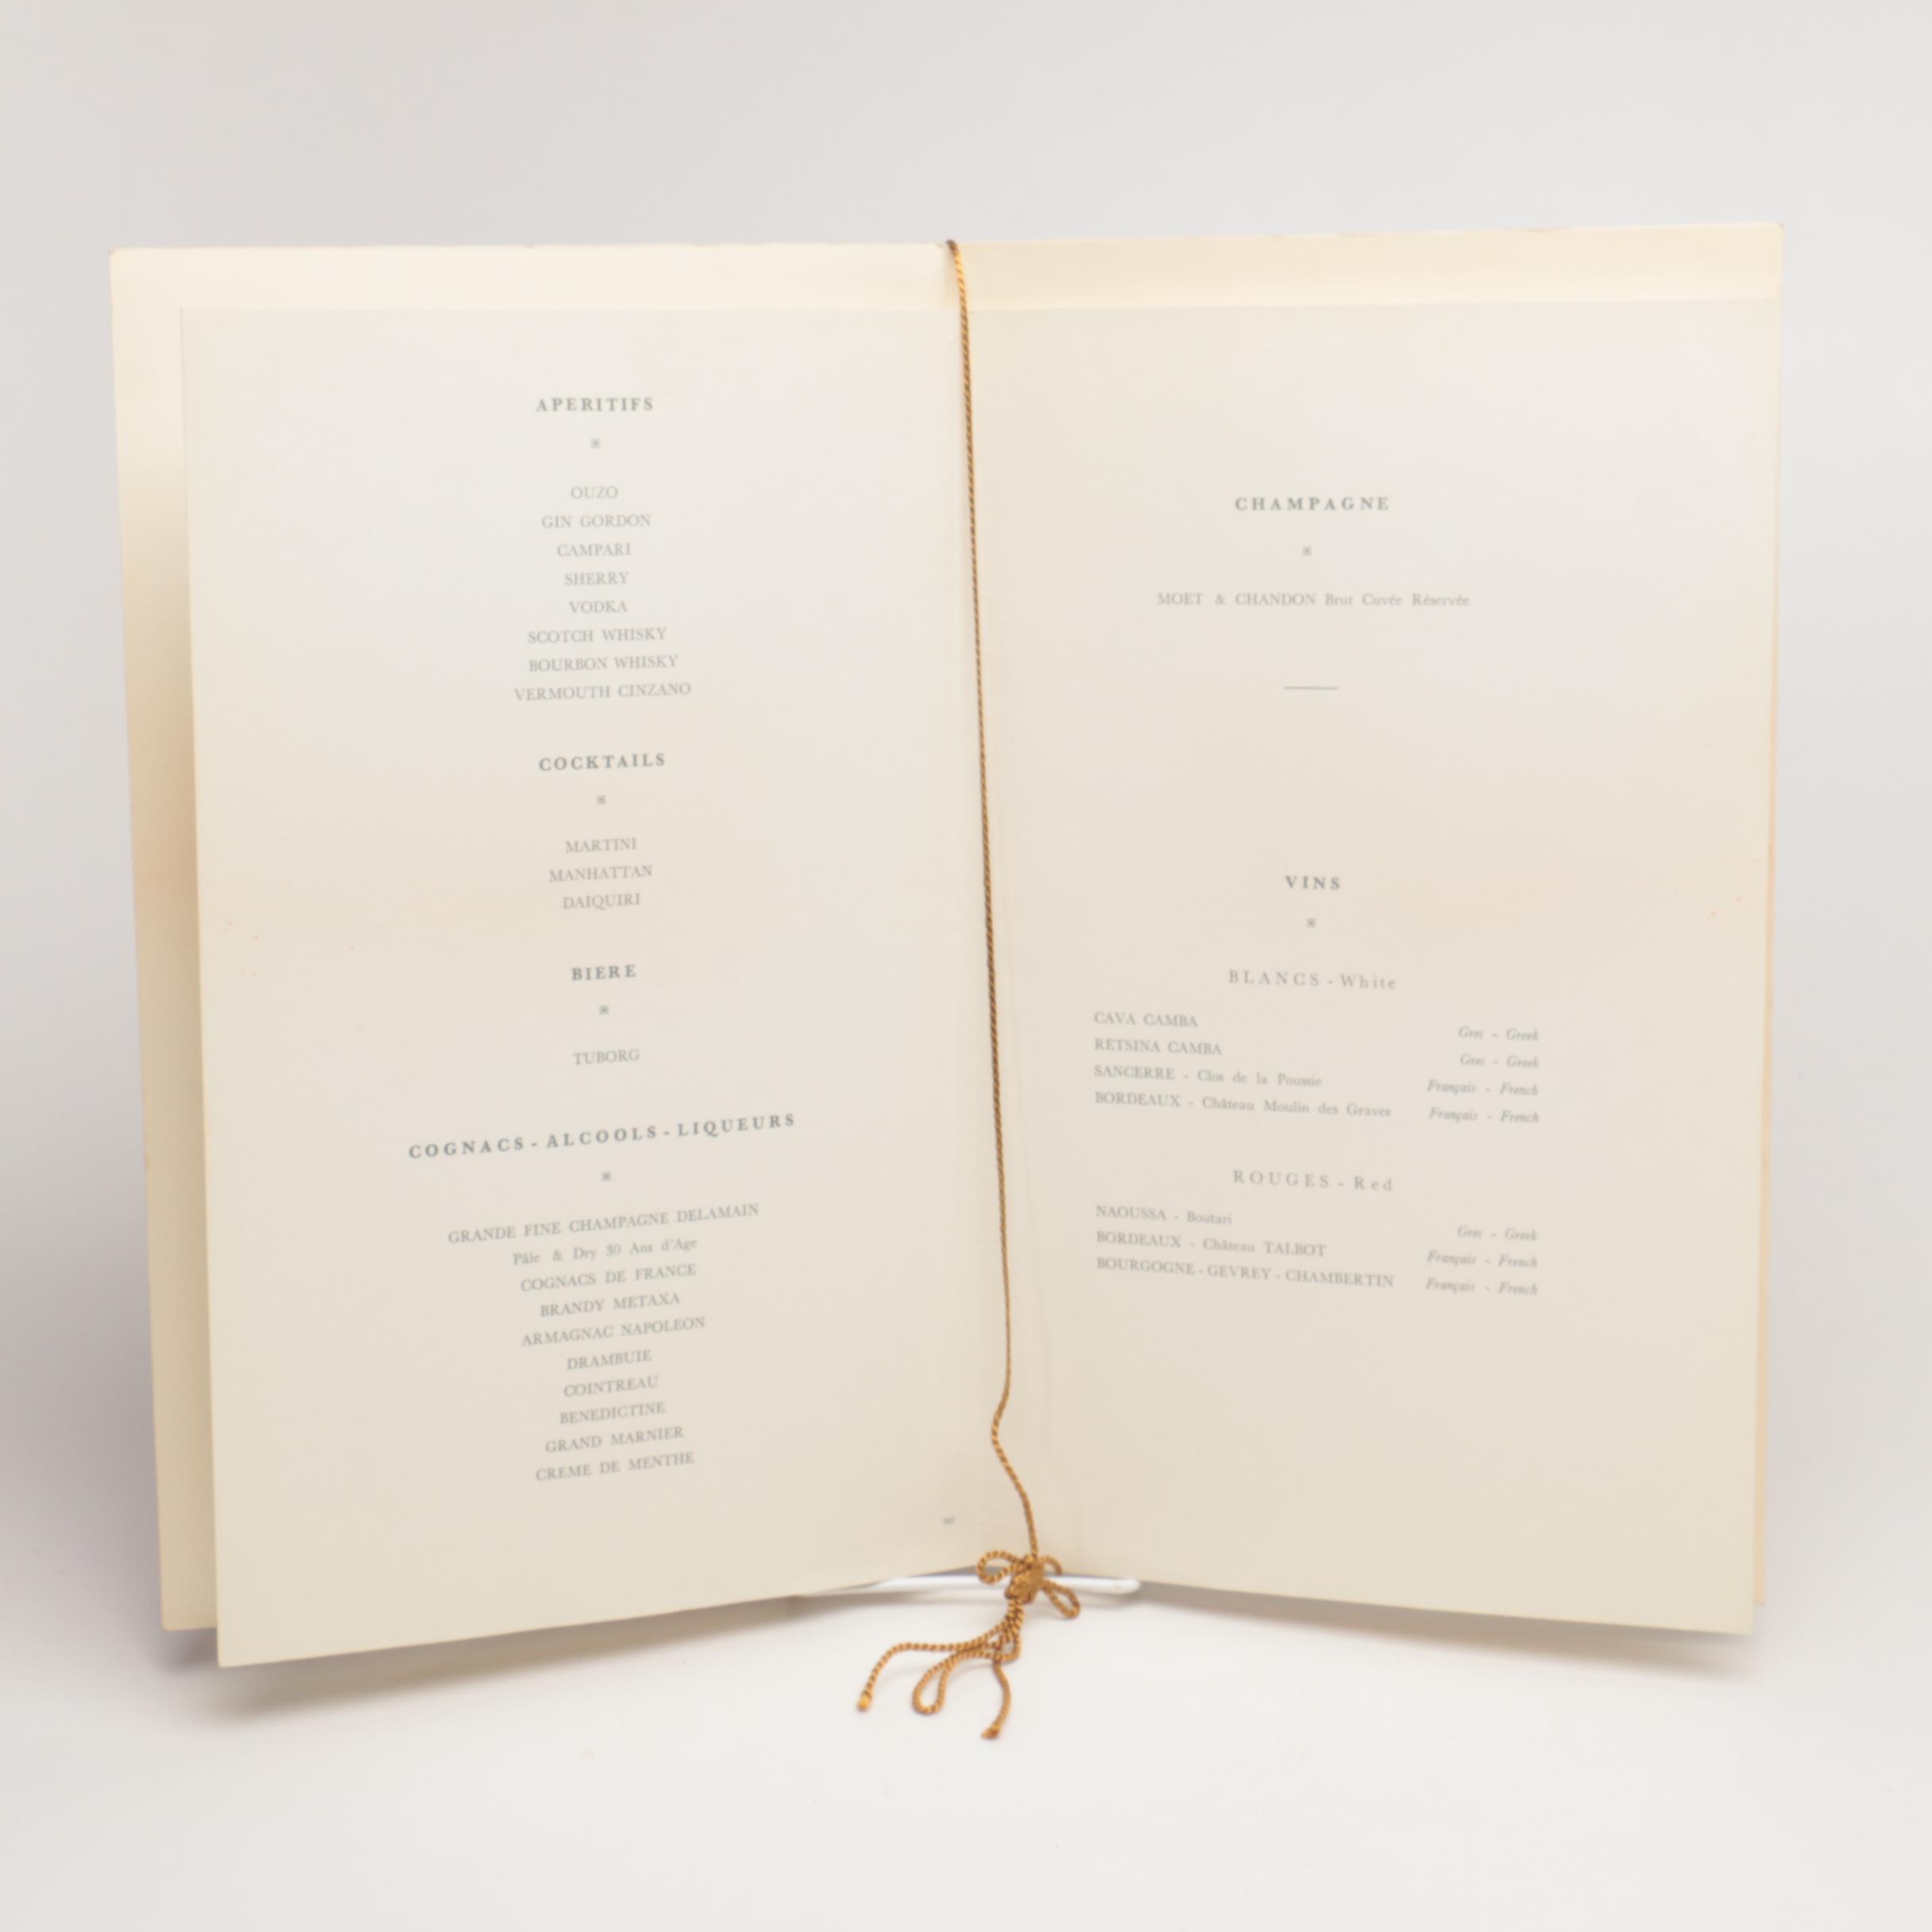 APERITIFS
OUZO
GIN GORDON
CAMPARI
SHERRY
VODKA
SCOTCH WHISKY
BOURBON WHISKY
VERMOUTH CINZANO
COCKTAILS
MARTINI
MANHATTAN
DAIQUIRI
BIERE
TUBORG
COGNACS - ALCOOLS - LIQUEURS
GRANDE FINE CHAMPAGNE DELAMAIN
Pâle & Dry 30 Ans d'Age
COGNACS DE FRANCE
BRANDY METAXA
ARMAGNAC NAPOLEON
DRAMBUIE
COINTREAU
BENEDICTINE
GRAND MARNIER
CREME DE MENTHE
CHAMPAGNE
MOET & CHANDON Brut Cuvée Réservée
VINS
BLANCS - White
CAVA CAMBA Grec - Greek
RETSINA CAMBA Grec - Greek
SANCERRE - Clos de la Poussie Français - French
BORDEAUX - Château Moulin des Graves Français - French
ROUGES - Red
NAOUSSA - Boutari Grec - Greek
BORDEAUX - Château TALBOT Français - French
BOURGOGNE - GEVREY - CHAMBERTIN Français - French